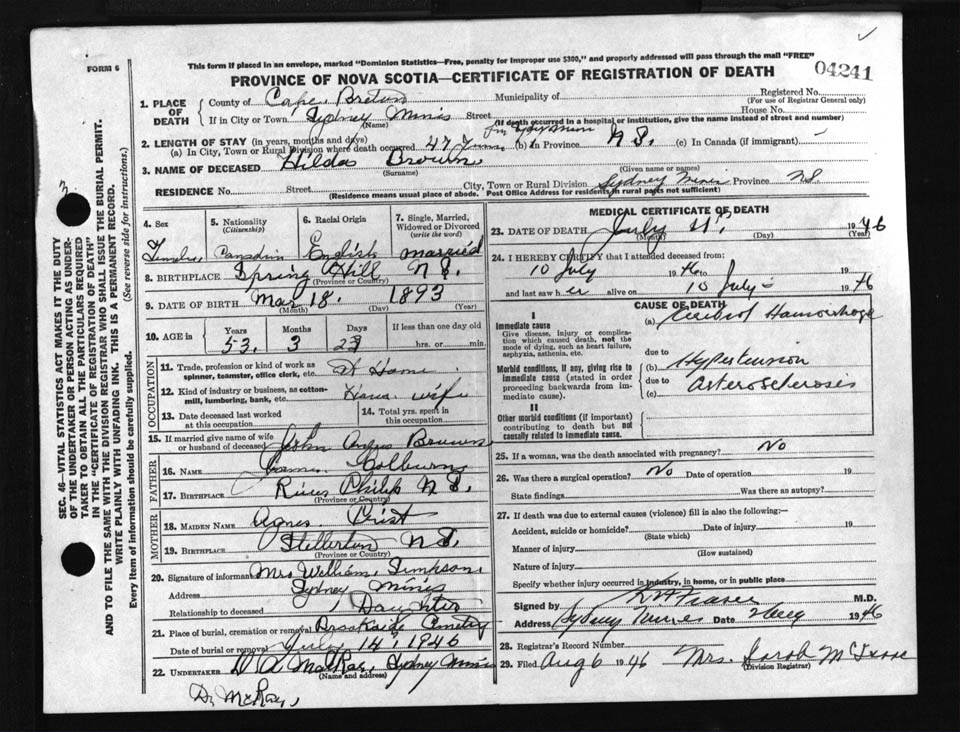 This form if placed in an envelope, marked "Dominion Statistics—Free, penalty for improper use $300," and properly addressed will pass through the mail "FREE"
FORM 6
PROVINCE OF NOVA SCOTIA—CERTIFICATE OF REGISTRATION OF DEATH
04241
1. PLACE OF DEATH
County of Cape Breton Municipality of Registered No.
(For use of Registrar General only)
If in City or Town Sydney Mines Street House No.
(Name) (If death occurred in a hospital or institution, give the name instead of street and number)
2. LENGTH OF STAY (in years, months and days)
(a) In City, Town or Rural Division where death occurred 47 (b) In Province N S. (c) In Canada (if immigrant) –
3. NAME OF DECEASED Hilda Brown
(Surname) (Given name or names)
RESIDENCE No. Street City, Town or Rural Division Sydney Mines Province N.S
(Residence means usual place of abode. Post Office Address for residents in rural parts not sufficient)
4. Sex 5. Nationality (Citizenship) 6. Racial Origin 7. Single, Married, Widowed or Divorced (write the word)
Female Canadian English married
8. BIRTHPLACE Spring Hill N S.
(Province or Country)
9. DATE OF BIRTH Mar 18. 1893
(Month) (Day) (Year)
10. AGE in Years Months Days If less than one day old
53. 3 23 hrs. or min.
OCCUPATION
11. Trade, profession or kind of work as spinner, teamster, office clerk, etc. At Home
12. Kind of industry or business, as cotton-mill, lumbering, bank, etc. House wife
13. Date deceased last worked at this occupation
14. Total yrs. spent in this occupation
15. If married give name of wife or husband of deceased John Angus Brown
FATHER
16. NAME Colburn
17. BIRTHPLACE River Philip N S.
(Province or Country)
MOTHER
18. MAIDEN NAME Agnes
19. BIRTHPLACE Stellarton N S.
(Province or Country)
20. Signature of informant Mrs William Simpson
Address Sydney Mines
Relationship to deceased Daughter
21. Place of burial, cremation or removal Brookside Cemetery
Date of burial or removal July 14, 1946
22. UNDERTAKER D A MacRae, Sydney Mines
(Name and address)
D. McRae,
MEDICAL CERTIFICATE OF DEATH
23. DATE OF DEATH July 11, 1946
(Month) (Day) (Year)
24. I HEREBY CERTIFY that I attended deceased from:
10 July 1946 to 19
and last saw her alive on 10 July 1946
CAUSE OF DEATH
I
Immediate cause
Give disease, injury or complication which caused death, not the mode of dying, such as heart failure, asphyxia, asthenia, etc.
(a) Cerebral Hamorrhage
due to
Morbid conditions, if any, giving rise to immediate cause (stated in order proceeding backwards from immediate cause).
(b) Hypertension
due to
(c) Arteriosclerosis
II
Other morbid conditions (if important) contributing to death but not causally related to immediate cause.
25. If a woman, was the death associated with pregnancy? No
26. Was there a surgical operation? No Date of operation 19
State findings Was there an autopsy?
27. If death was due to external causes (violence) fill in also the following:—
Accident, suicide or homicide? Date of injury 19
(State which)
Manner of injury
(How sustained)
Nature of injury
Specify whether injury occurred in industry, in home, or in public place
Signed by M.D.
Address Sydney Mines Date 2 Aug 1946
28. Registrar's Record Number
29. Filed Aug 6 1946 Mrs. Sarah McIsaac
(Division Registrar)
SEC. 46—VITAL STATISTICS ACT MAKES IT THE DUTY
OF THE UNDERTAKER OR PERSON ACTING AS UNDERTAKER TO OBTAIN ALL THE PARTICULARS REQUIRED
IN THE "CERTIFICATE OF REGISTRATION OF DEATH"
AND TO FILE THE SAME WITH THE DIVISION REGISTRAR WHO SHALL ISSUE THE BURIAL PERMIT.
WRITE PLAINLY WITH UNFADING INK. THIS IS A PERMANENT RECORD.
Every item of information should be carefully supplied. (See reverse side for instructions.)